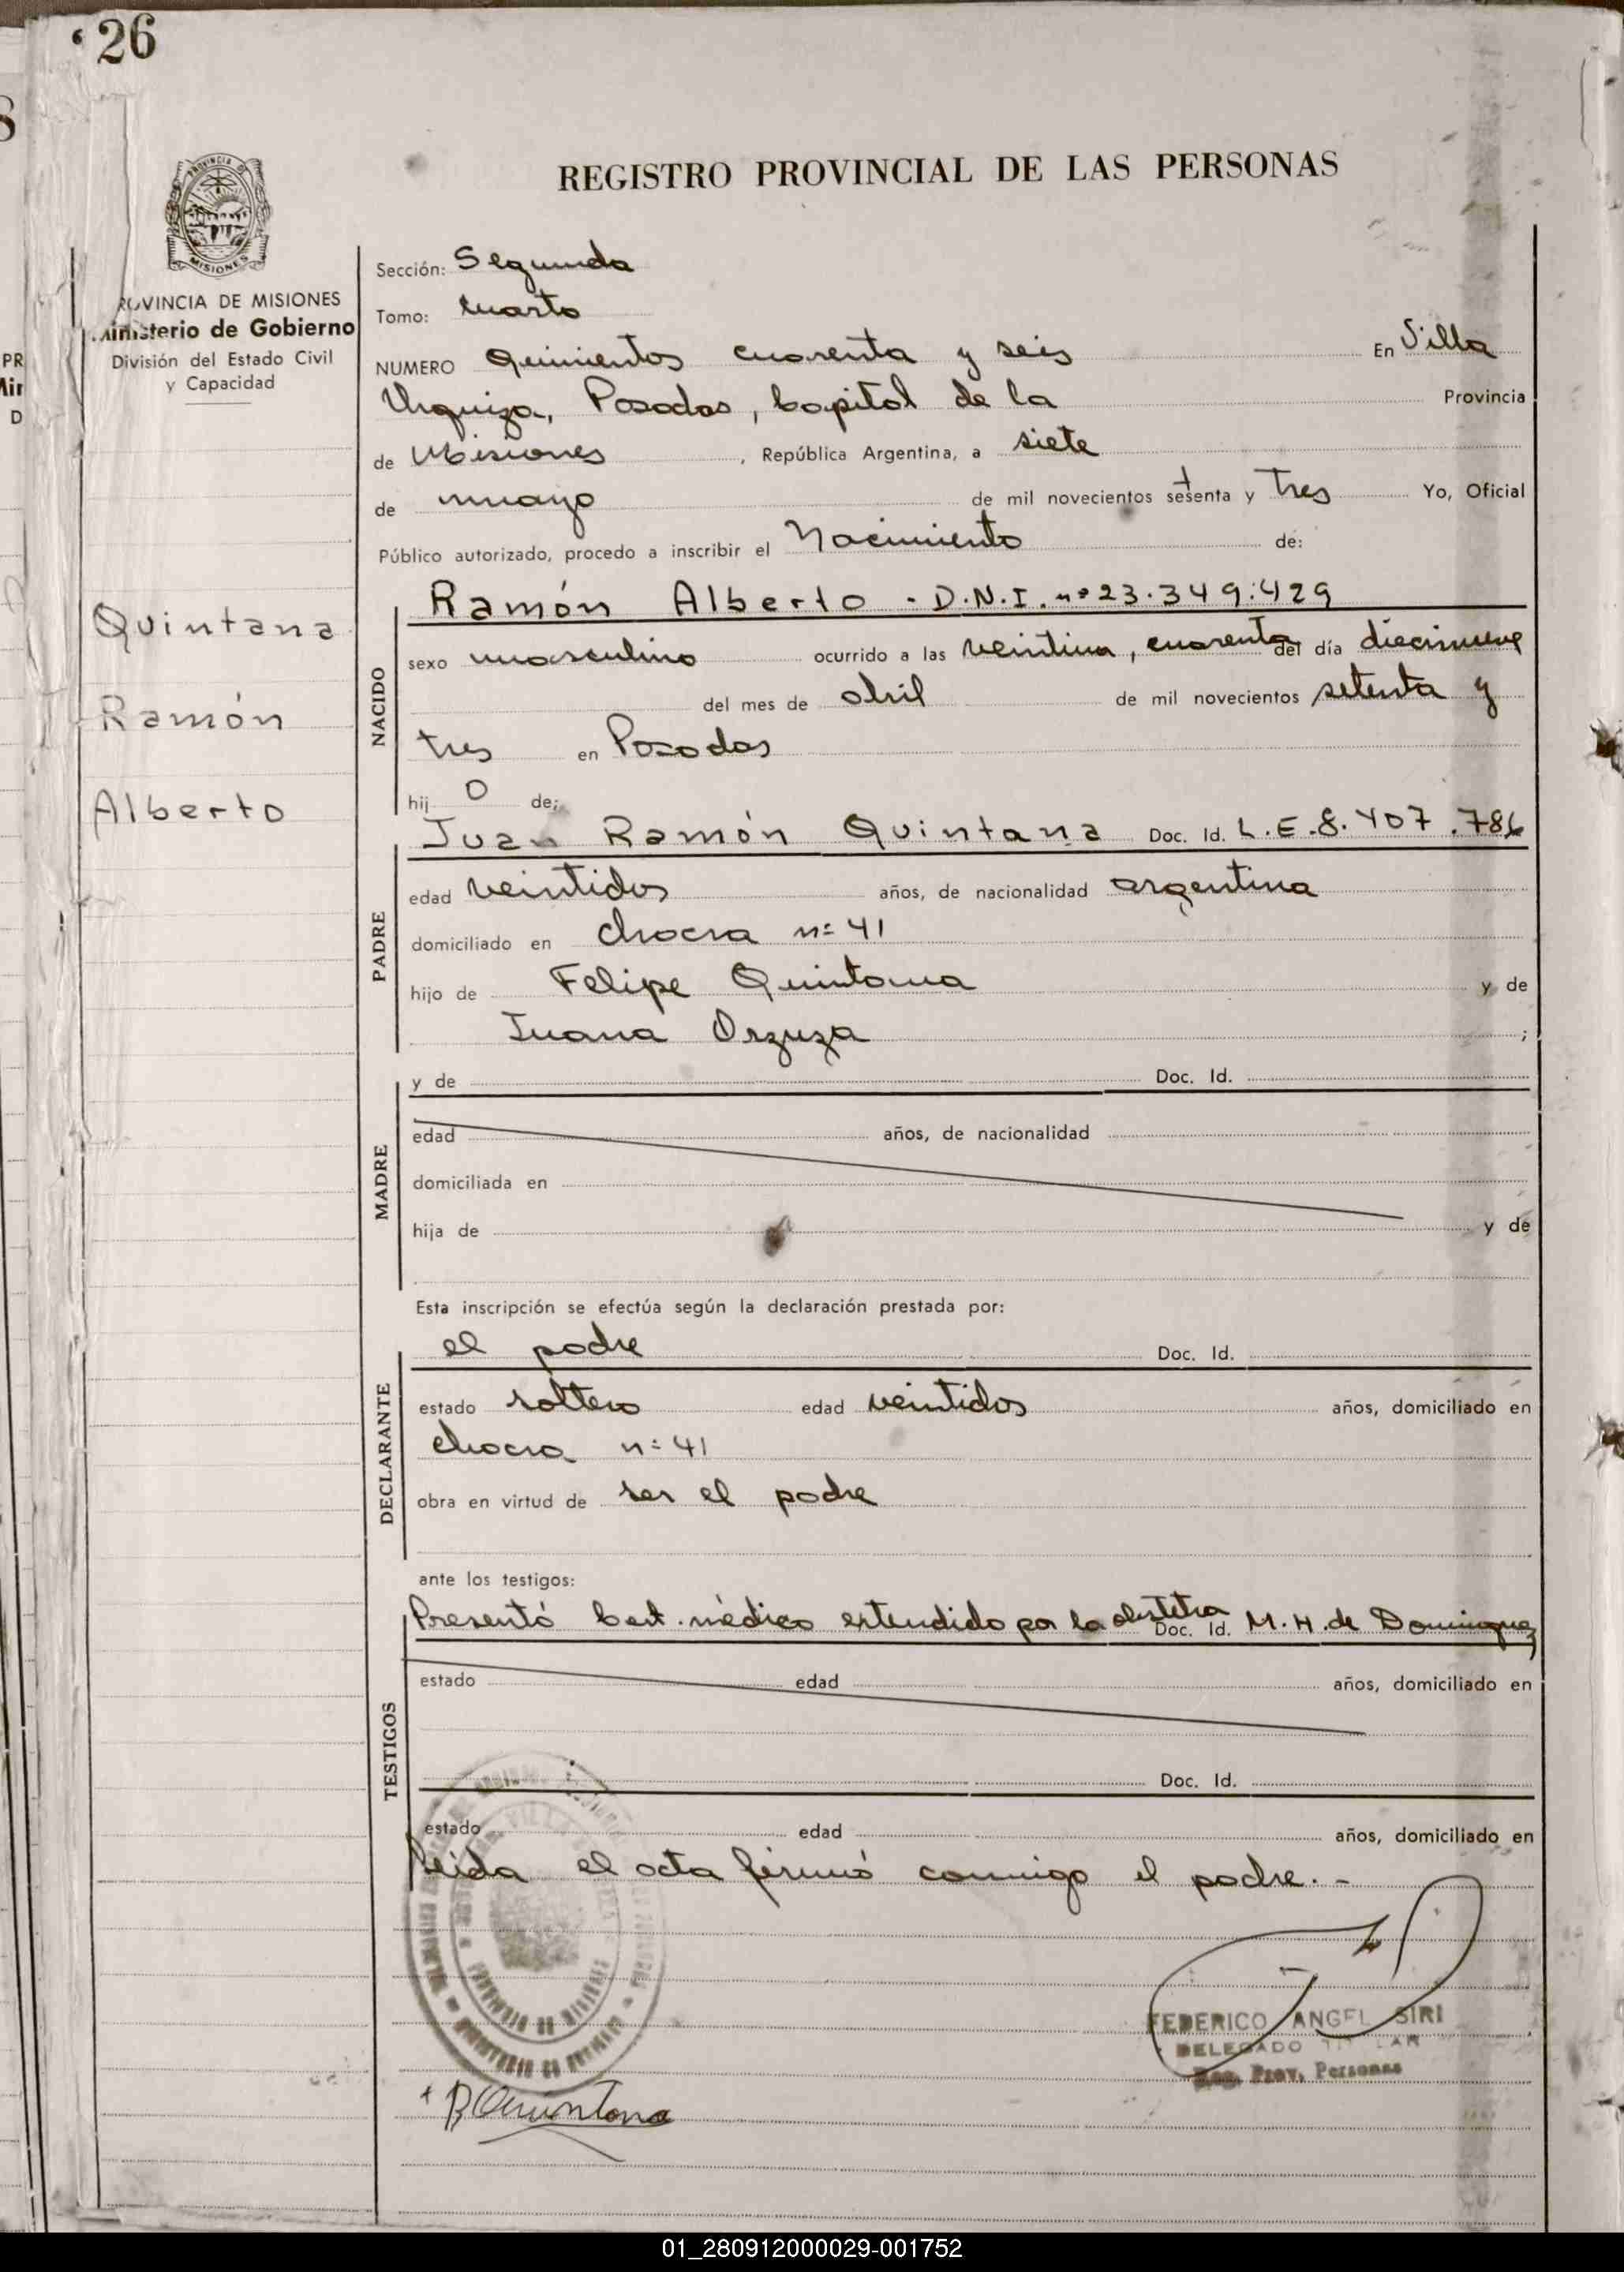 26
REGISTRO PROVINCIAL DE LAS PERSONAS
MISIONES
PROVINCIA DE MISIONES
Ministerio de Gobierno
División del Estado Civil
y Capacidad
Quintana
Ramón
Alberto
Sección: Segunda
Tomo: Cuarto
NUMERO Quinientos cuarenta y seis En Villa
Urquiza, Posadas, Capital de la Provincia
de Misiones , República Argentina, a siete
de mayo de mil novecientos setenta y tres Yo, Oficial
Público autorizado, procedo a inscribir el Nacimiento de:
NACIDO
Ramón Alberto - D.N.I. nº 23.349.429
sexo masculino ocurrido a las veintiuna, cuarenta del día diecinueve
del mes de abril de mil novecientos setenta y
tres en Posadas
hij o de:
PADRE
Juan Ramón Quintana Doc. Id. L.E. 8.407.786
edad veintidos años, de nacionalidad argentina
domiciliado en chacra nº 41
hijo de Felipe Quintana y de
Juana Orzuza ;
MADRE
y de Doc. Id.
edad años, de nacionalidad
domiciliada en
hija de y de
Esta inscripción se efectúa según la declaración prestada por:
DECLARANTE
el padre Doc. Id.
estado soltero edad veintidos años, domiciliado en
chacra nº 41
obra en virtud de ser el padre
ante los testigos:
TESTIGOS
Presentó Cert. médico extendido por la obstetra Doc. Id. M. H. de Dominguez
estado edad años, domiciliado en
Doc. Id.
estado edad años, domiciliado en
Leida el acta firmó conmigo el padre. -
FEDERICO ANGEL SIRI
DELEGADO TITULAR
Reg. Prov. Personas
R Quintana
01_280912000029-001752